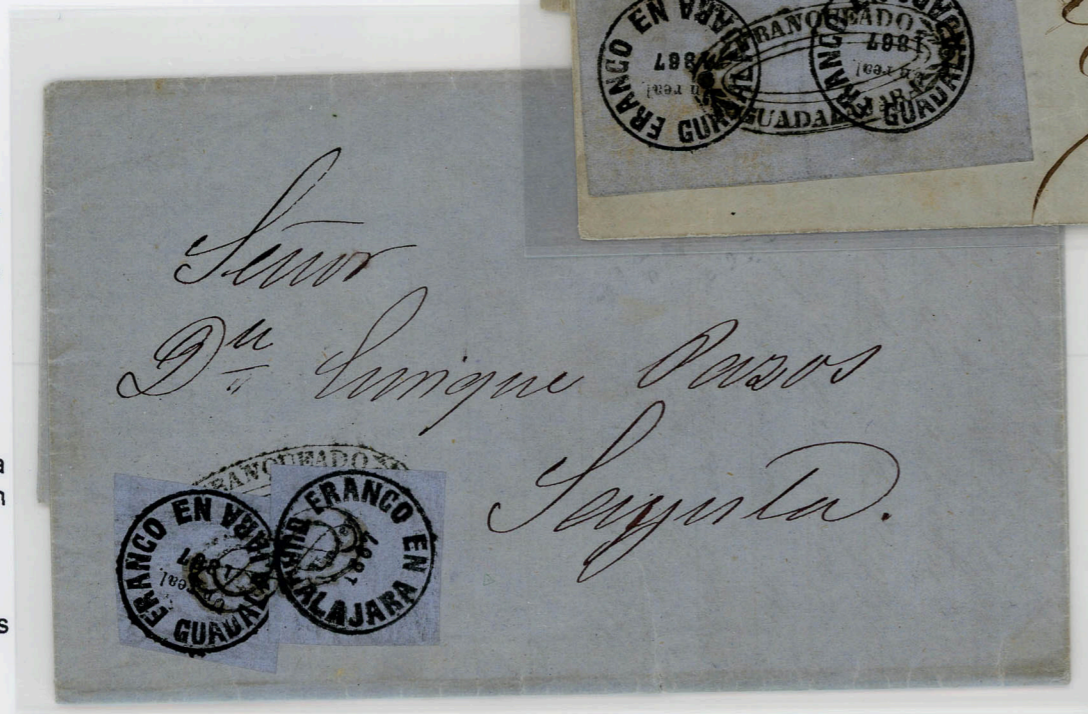 FRANCO EN GUADALAJARA
1867
Un real
FRANQUEADO
GUADAL
FRANCO EN GUADALAJARA
1867
Un real
Señor
Dn Enrique Pazos
Sayula.
FRANQUEADO
FRANCO EN GUADALAJARA
1867
real
FRANCO EN GUADALAJARA
1867
a
n
s